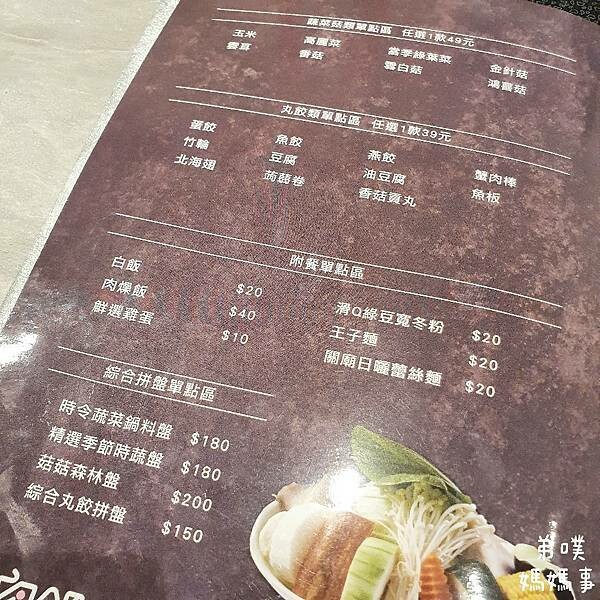 蔬菜菇類單點區 任選1款49元
玉米 高麗菜 當季綠葉菜 金針菇
雲耳 香菇 雪白菇 鴻喜菇
丸餃類單點區 任選1款39元
蛋餃 魚餃 燕餃 蟹肉棒
竹輪 豆腐 油豆腐 魚板
北海翅 蒟蒻卷 香菇貢丸
附餐單點區
白飯 $20
肉燥飯 $40
鮮選雞蛋 $10
滑Q綠豆寬冬粉 $20
王子麵 $20
關廟日曬蕾絲麵 $20
綜合拼盤單點區
時令蔬菜鍋料盤 $180
精選季節時蔬盤 $180
菇菇森林盤 $200
綜合丸餃拼盤 $150
弟噗
媽媽事